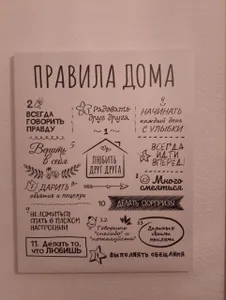 ПРАВИЛА ДОМА
2
ВСЕГДА
ГОВОРИТЬ
ПРАВДУ
Радовать
друг друга
НАЧИНАТЬ
каждый день
С УЛЫБКИ
1
ЛЮБИТЬ
ДРУГ ДРУГА
Верить
в себя
ВСЕГДА
ИДТИ
ВПЕРЕД!
ДАРИТЬ
объятия и поцелуи
Много
смеяться
10 ДЕЛАТЬ СЮРПРИЗЫ
НЕ ЛОЖИТЬСЯ
СПАТЬ В ПЛОХОМ
НАСТРОЕНИИ
12
Говорить
"спасибо" и
"пожалуйста"
Делиться
своими
мыслями
11. Делать то,
что ЛЮБИШЬ
ВЫПОЛНЯТЬ ОБЕЩАНИЯ